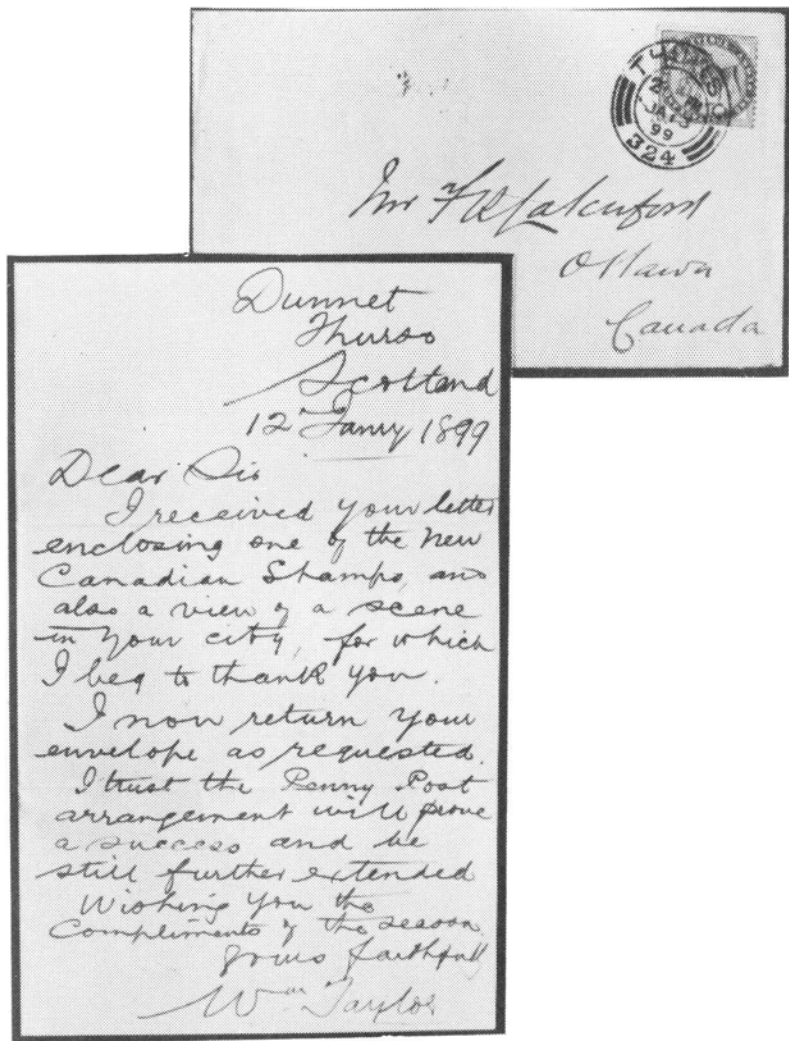 THURSO
JA 13
99
324
Mr F R
Ottawa
Canada
Dunnet
Thurso
Scotland
12 Jany 1899
Dear Sir
I received your letter
enclosing one of the new
Canadian Stamps, and
also a view of a scene
in your city, for which
I beg to thank you.
I now return your
envelope as requested.
I trust the Penny Post
arrangement will prove
a success and be
still further extended
Wishing you the
Compliments of the season
yours faithfully
Wm Taylor